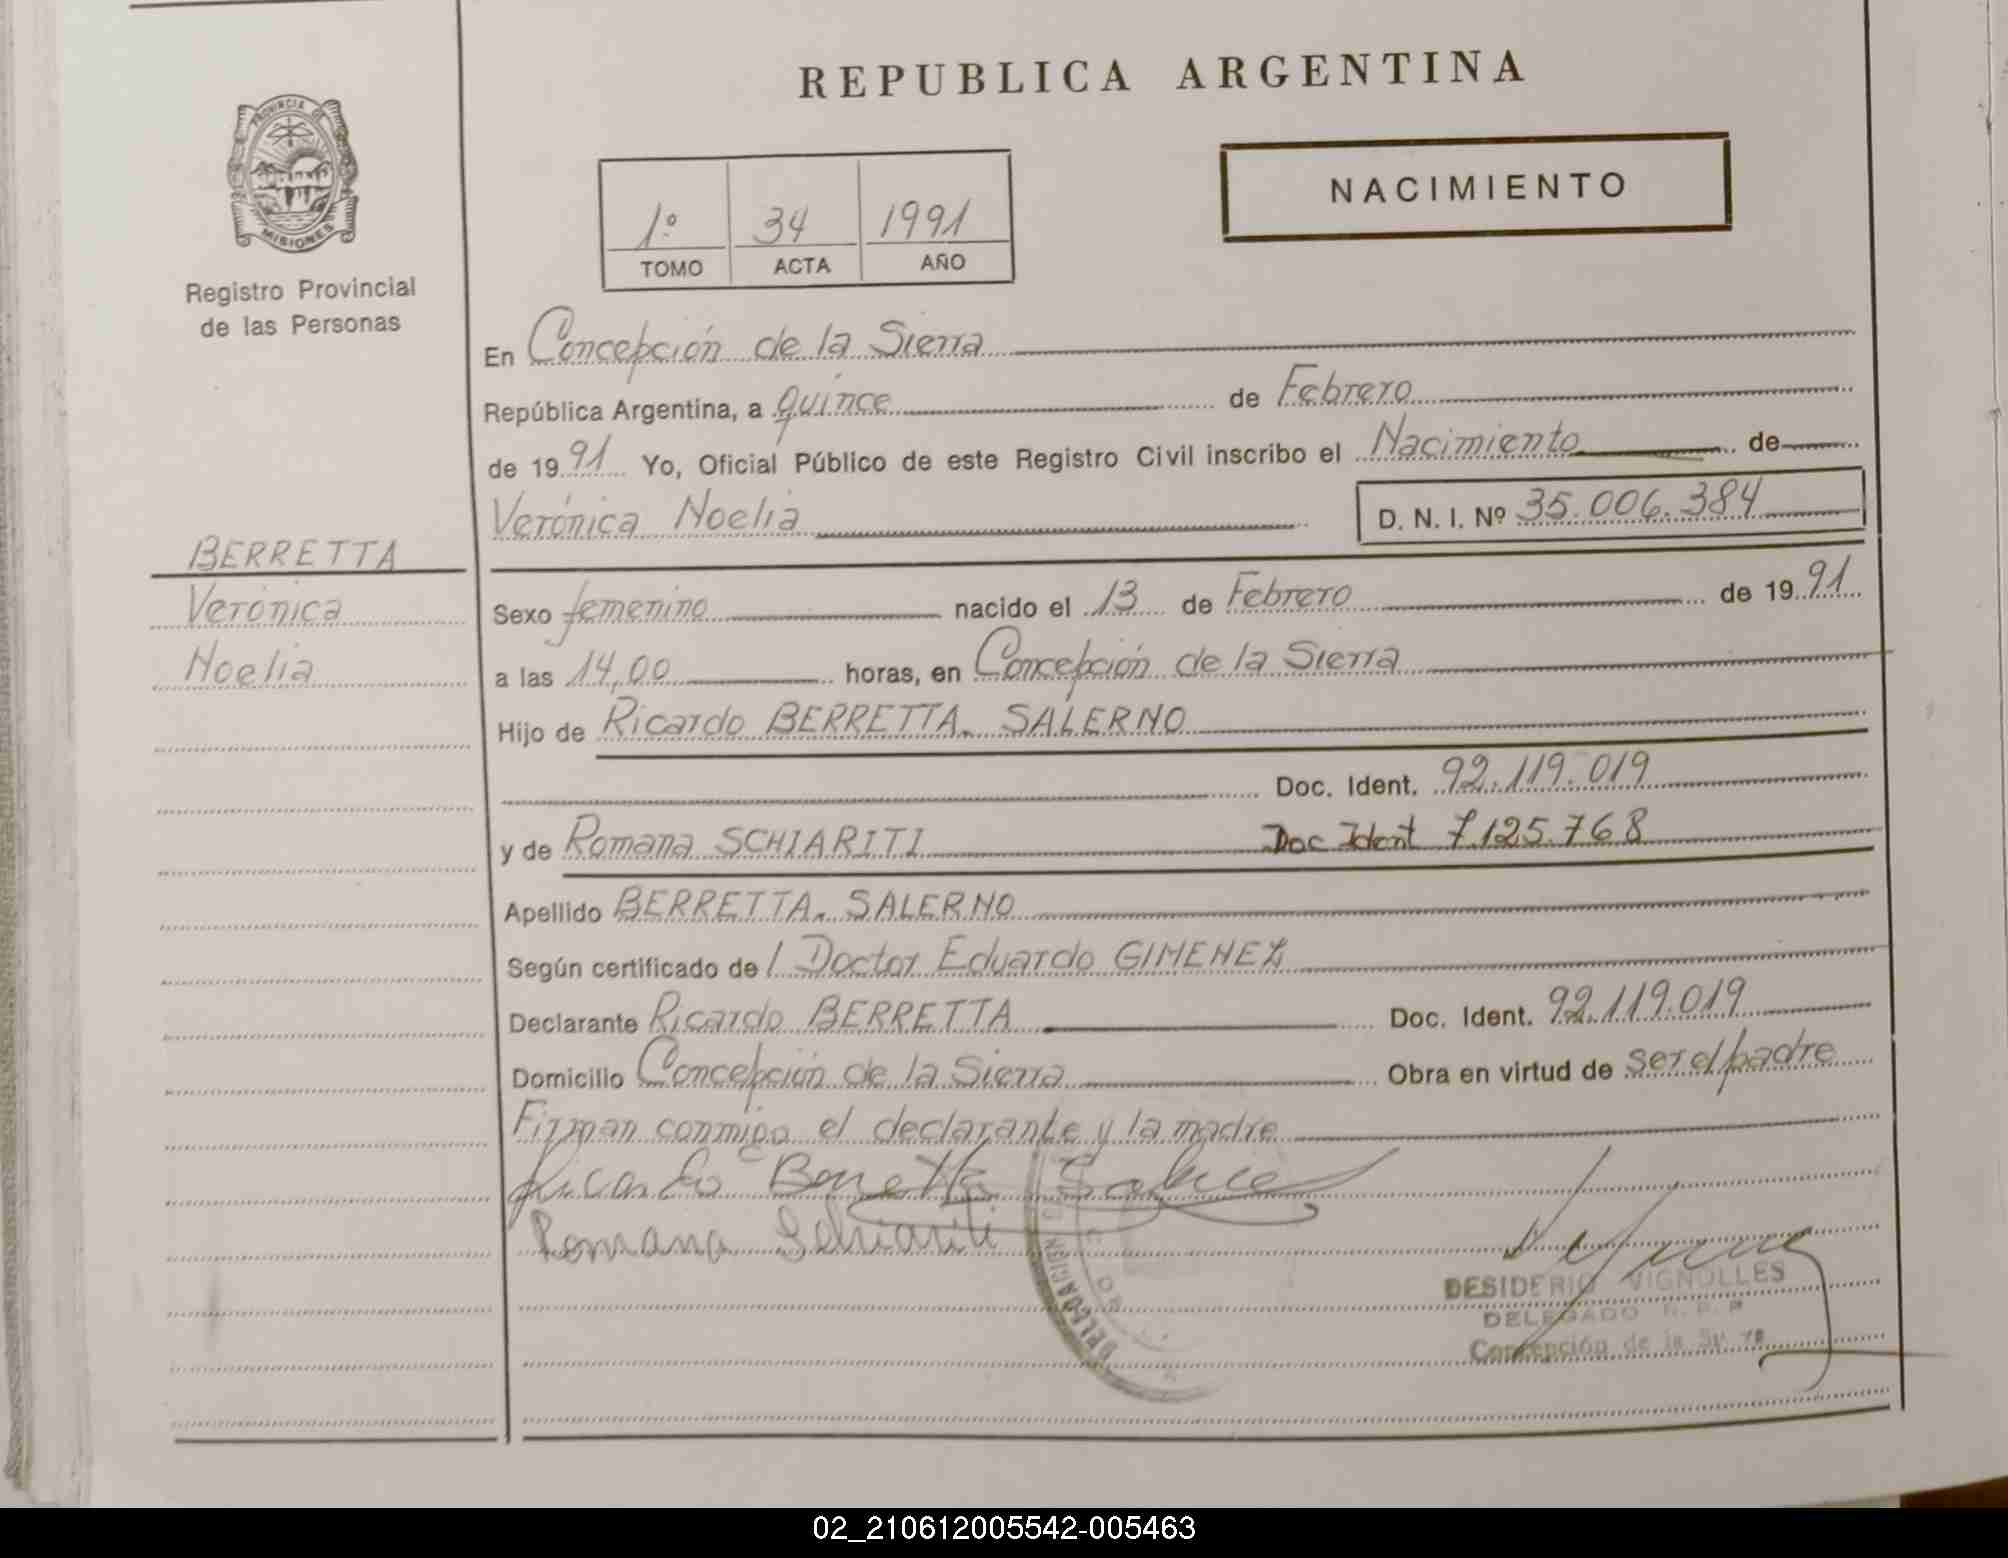 REPUBLICA ARGENTINA
PROVINCIA DE
MISIONES
Registro Provincial
de las Personas
1º 34 1991
TOMO ACTA AÑO
NACIMIENTO
En Concepción de la Sierra
República Argentina, a quince de Febrero
de 1991 Yo, Oficial Público de este Registro Civil inscribo el Nacimiento de
Verónica Noelia D. N. I. Nº 35.006.384
BERRETTA
Verónica
Noelia
Sexo femenino nacido el 13 de Febrero de 1991
a las 14,00 horas, en Concepción de la Sierra
Hijo de Ricardo BERRETTA. SALERNO
Doc. Ident. 92.119.019
y de Romana SCHIARITI Doc Ident 7.125.768
Apellido BERRETTA. SALERNO
Según certificado de l Doctor Eduardo GIMENEZ
Declarante Ricardo BERRETTA Doc. Ident. 92.119.019
Domicilio Concepción de la Sierra Obra en virtud de ser el padre
Firman conmigo el declarante y la madre
Ricardo Berretta
Romana Schiariti
DESIDERIO VIGNOLLES
DELEGADO R. P. P
Concepción de la
02_210612005542-005463